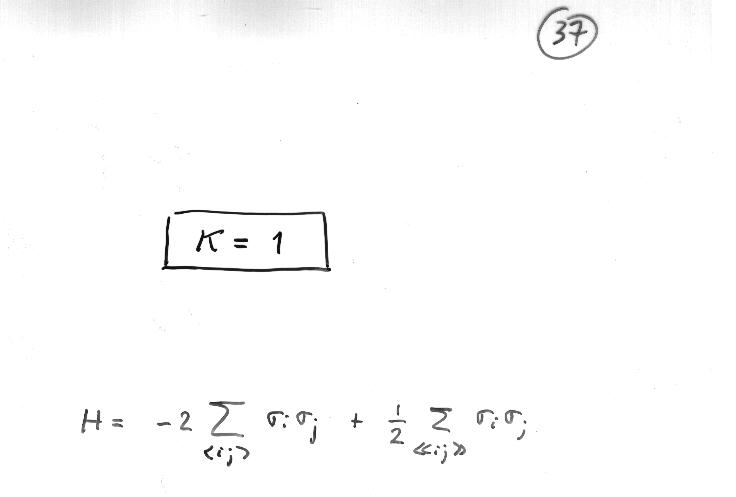 37
K = 1
H = -2 ∑<ij> σiσj + 1/2 ∑<<ij>> σiσj